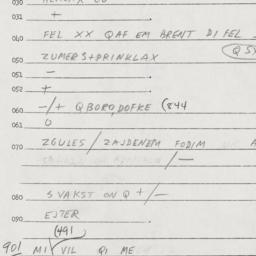 030
031 +
040 FEL XX QAF EM BRENT DI FEL
050 ZUMERS+DRINKLAX
051 —
052 +
060 —/+ QBORO, DOFKE (844
061 O
070 ZGULES / ZAJDENEM FODIM A
/—
080 SVAKST ON Q +/—
090 EJTER
(491)
901 MI VIL QI ME